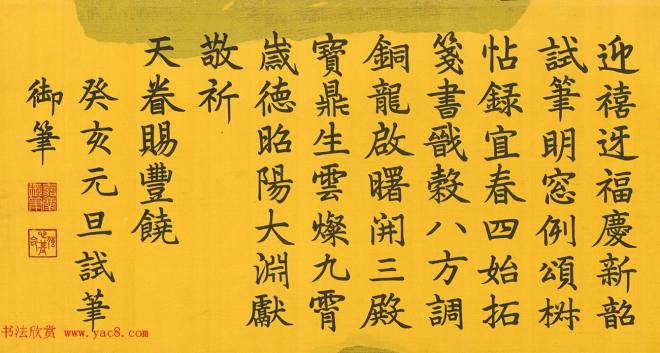 迎禧迓福慶新韶
試筆明窓例頌椒
帖録宜春四始拓
箋書戩穀八方調
銅龍啟曙開三殿
寶鼎生雲燦九霄
歲德昭陽大淵獻
敬祈
天眷賜豐饒
癸亥元旦試筆
御筆
书法欣赏 www.yac8.com